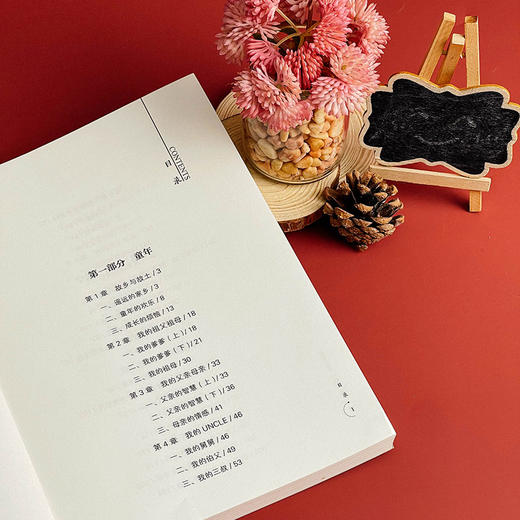 CONTENTS
目录
第一部分 童年
第1章 故乡与故土/3
一、遥远的家乡/3
二、童年的欢乐/8
三、成长的烦恼/13
第2章 我的祖父祖母/18
一、我的爹爹（上）/18
二、我的爹爹（下）/21
三、我的祖母/30
第3章 我的父亲母亲/33
一、父亲的智慧（上）/33
二、父亲的智慧（下）/36
三、母亲的情感/41
第4章 我的UNCLE/46
一、我的舅舅/46
二、我的伯父/49
三、我的三叔/53
目录
1